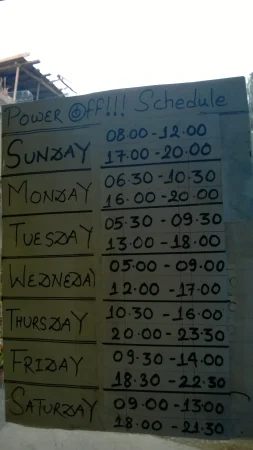 POWER Off!!! Schedule
SUNDAY 08.00-12.00
17.00-20.00
MONDAY 06.30-10.30
16.00-20.00
TUESDAY 05.30-09.30
13.00-18.00
WEDNEDAY 05.00-09.00
12.00-17.00
THURSDAY 10.30-16.00
20.00-23.30
FRIDAY 09.30-14.00
18.30-22.30
SATURDAY 09.00-13.00
18.00-21.30